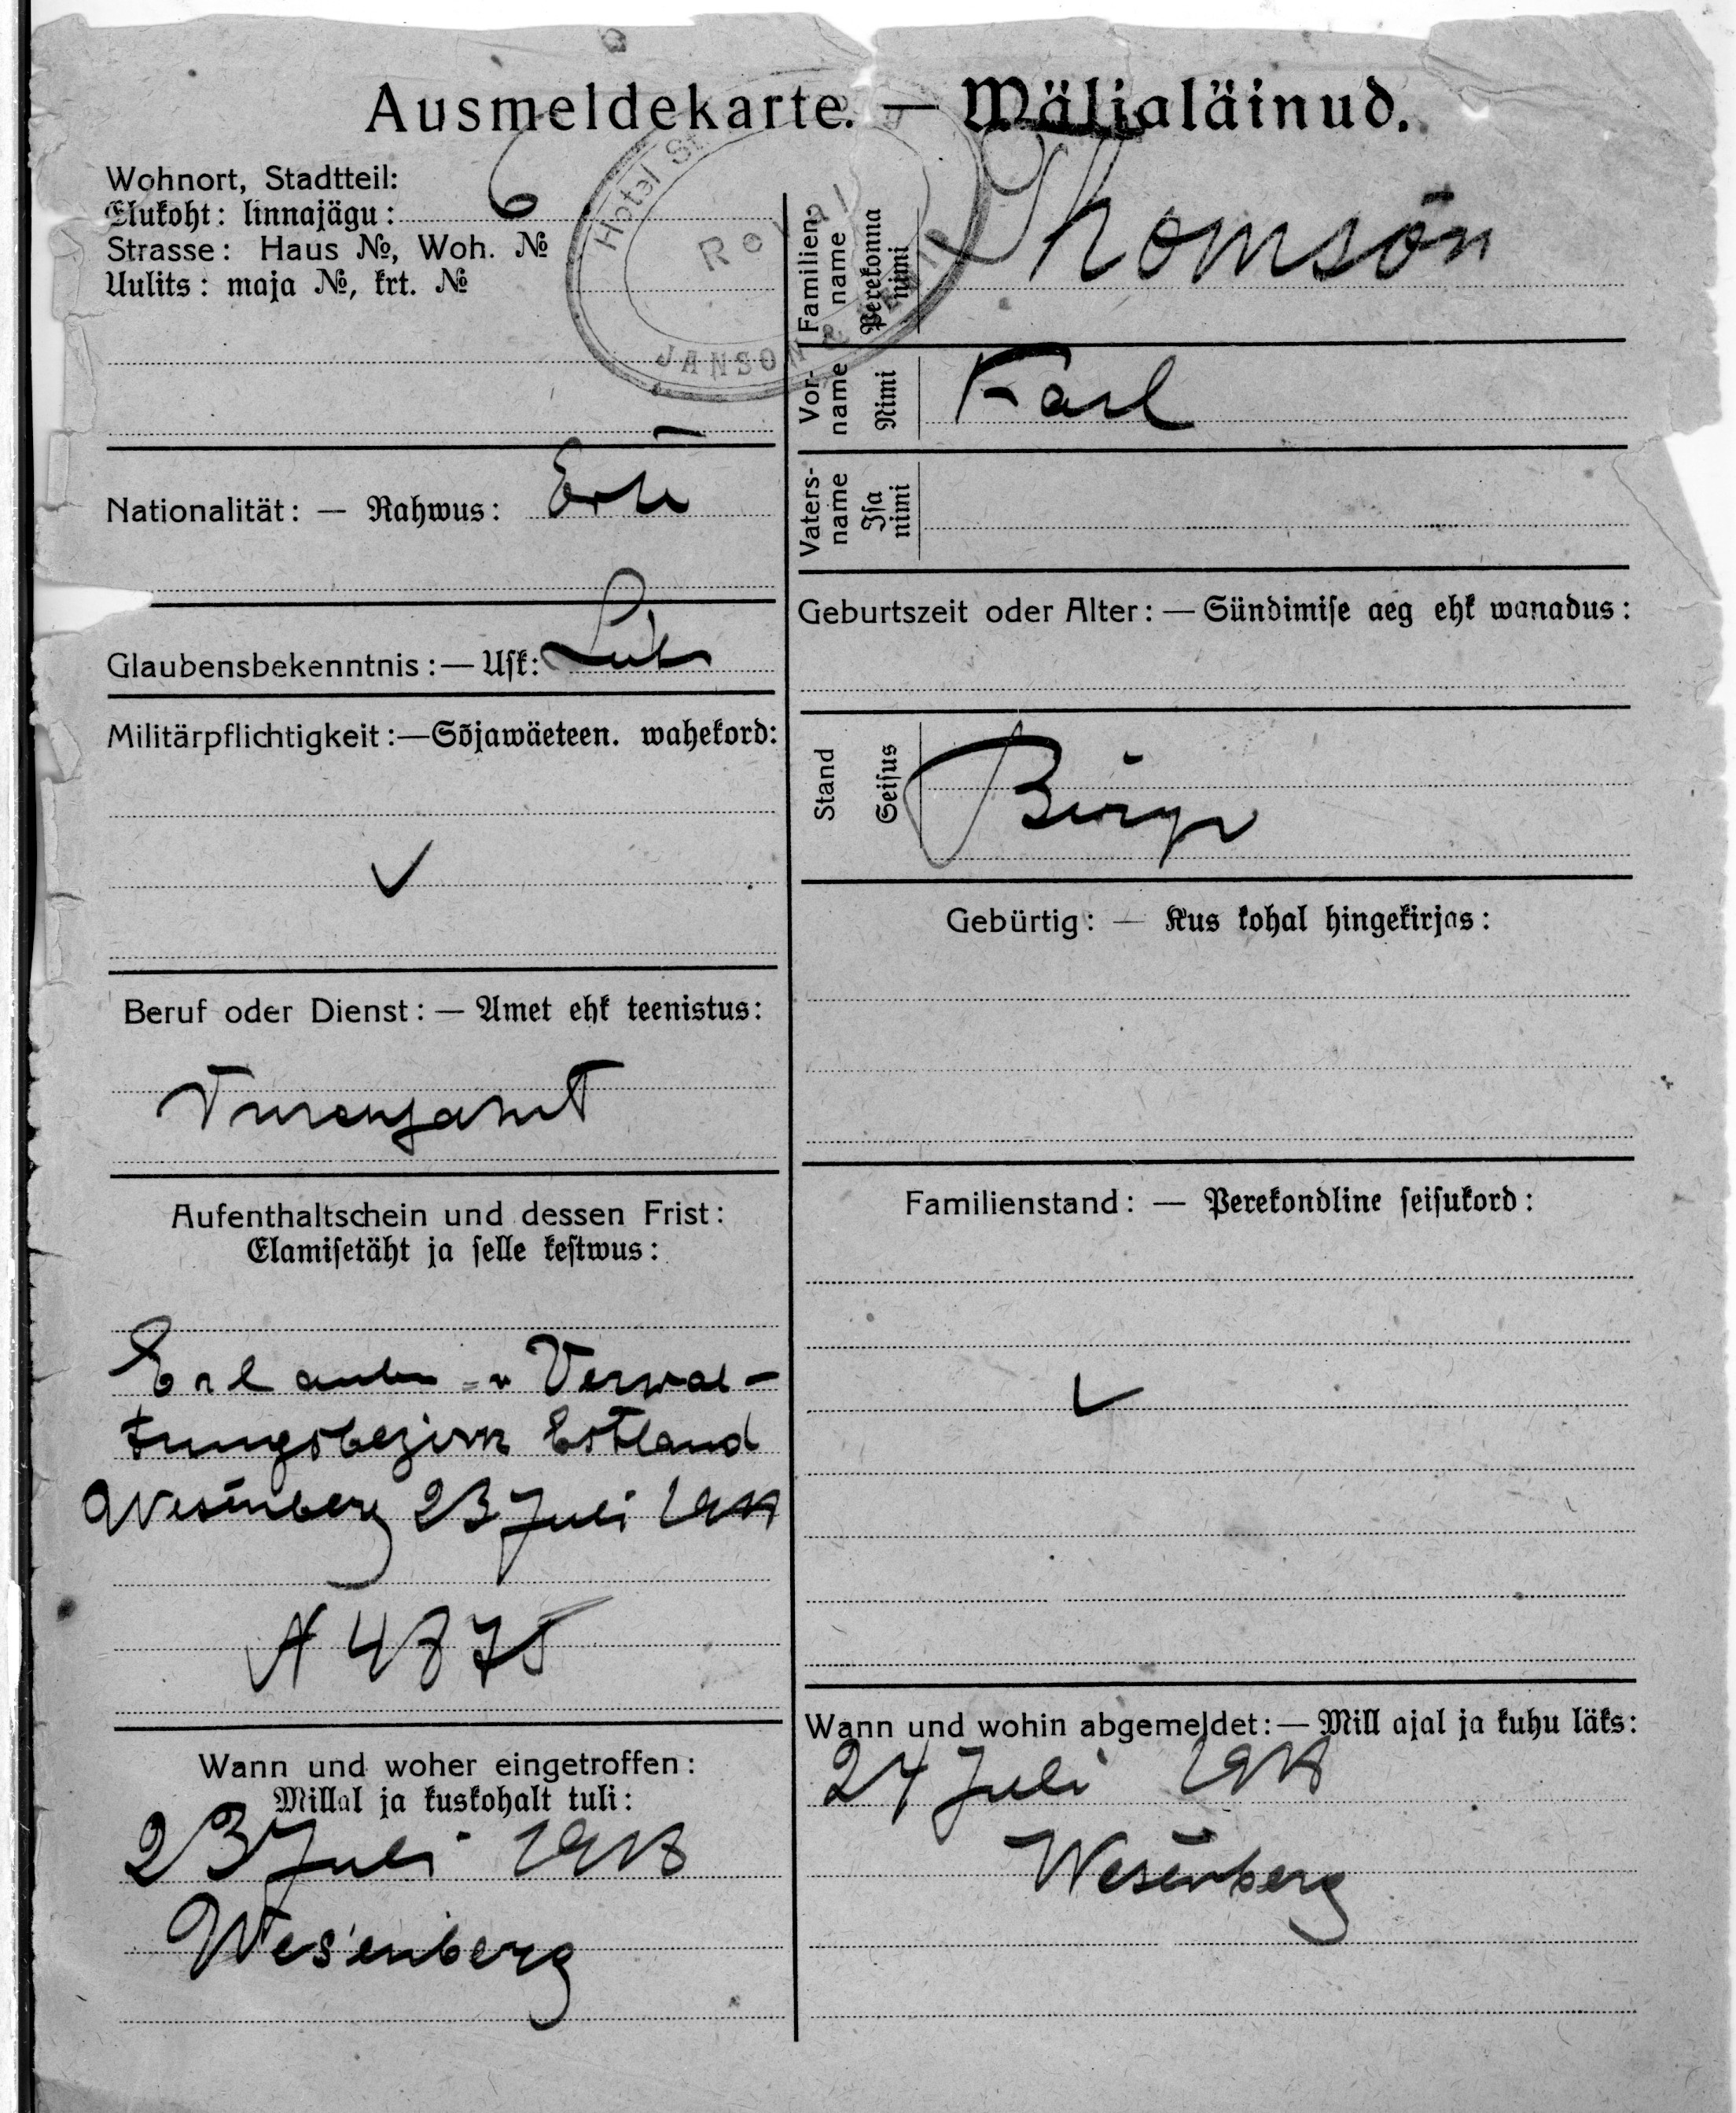 Ausmeldekarte. — Wäljaläinud.
Wohnort, Stadtteil:
Elukoht: linnajägu: 6
Strasse: Haus №, Woh. №
Uulits: maja №, krt. №
Hotel St.
Royal
JANSON &
Nationalität: — Rahwus:
Glaubensbekenntnis: — Usk: Luth
Militärpflichtigkeit:—Sõjawäeteen. wahekord:
Beruf oder Dienst: — Amet ehk teenistus:
Aufenthaltschein und dessen Frist:
Elamisetäht ja selle kestwus:
Verwal-
tungsbezirk Estland
Wesenberg 23 Juli 1918
Wann und woher eingetroffen:
Millal ja kuskohalt tuli:
23 Juli 1918
Wesenberg
Familien-
name
Perekonna
nimi
Thomson
Vor-
name
Nimi
Karl
Vaters-
name
Isa
nimi
Geburtszeit oder Alter: — Sündimise aeg ehk wanadus:
Stand
Seisus
Gebürtig: — Kus kohal hingekirjas:
Familienstand: — Perekondline seisukord:
Wann und wohin abgemeldet:— Mill ajal ja kuhu läks:
24 Juli 1918
Wesenberg